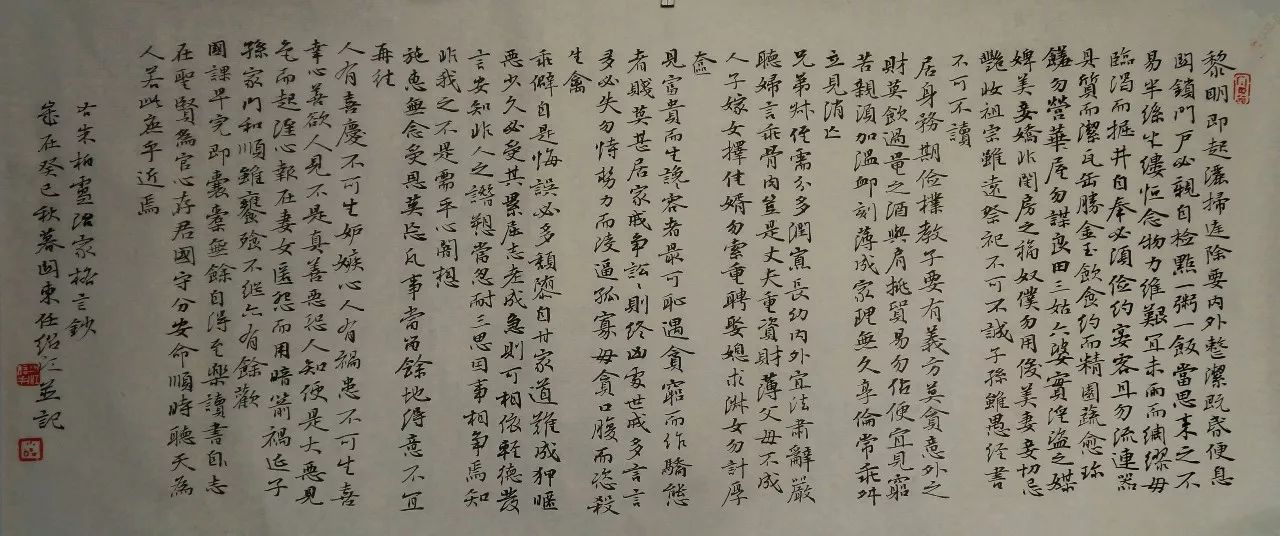 黎明即起灑掃庭除要內外整潔既昏便息
關鎖門戶必親自檢點一粥一飯當思來之不
易半絲半縷恒念物力維艱宜未雨而綢繆毋
臨渴而掘井自奉必須儉約宴客且勿流連器
具質而潔瓦缶勝金玉飲食約而精園蔬愈珍
饈勿營華屋勿謀良田三姑六婆實淫盜之媒
婢美妾嬌非閨房之福奴僕勿用俊美妻妾切忌
艷妝祖宗雖遠祭祀不可不誠子孫雖愚經書
不可不讀
居身務期儉樸教子要有義方莫貪意外之
財莫飲過量之酒與肩挑貿易勿佔便宜見窮
苦親須加溫卹刻薄成家理無久享倫常乖舛
立見消亡
兄弟叔侄需分多潤寡長幼內外宜法肅辭嚴
聽婦言乖骨肉豈是丈夫重資財薄父母不成
人子嫁女擇佳婿勿索重聘娶媳求淑女勿計厚
奩
見富貴而生諂容者最可恥遇貧窮而作驕態
者賤莫甚居家戒爭訟訟則終凶處世戒多言言
多必失勿恃勢力而凌逼孤寡毋貪口腹而恣殺
生禽
乖僻自是悔誤必多頹隳自甘家道難成狎暱
惡少久必受其累屈志老成急則可相依輕聽發
言安知非人之譖愬當忍耐三思因事相爭焉知
非我之不是需平心闇想
施惠無念受恩莫忘凡事當留餘地得意不宜
再往
人有喜慶不可生妒嫉心人有禍患不可生喜
幸心善欲人見不是真善惡恐人知便是大惡見
色而起淫心報在妻女匿怨而用暗箭禍延子
孫家門和順雖饔飧不繼亦有餘歡
國課早完即囊橐無餘自得至樂讀書即志
在聖賢為官心存君國守分安命順時聽天為
人若此庶乎近焉
右朱柏廬治家格言鈔
歲在癸巳秋暮關東任紹江並記